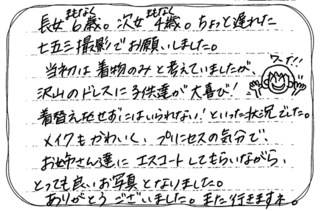 長女ももなく6歳。次女ももなく4歳。ちょっと遅れた
七五三撮影でお願いしました。
当初は着物のみと考えていましたが、
沢山のドレスに子供達が大喜び!
ワーイ!!
着替えさせずにはいられない!といった状況でした。
メイクもかわいく、プリンセスの気分で
お姉さん達にエスコートしてもらいながら、
とっても良いお写真となりました。
ありがとうございました。また行きますネ。